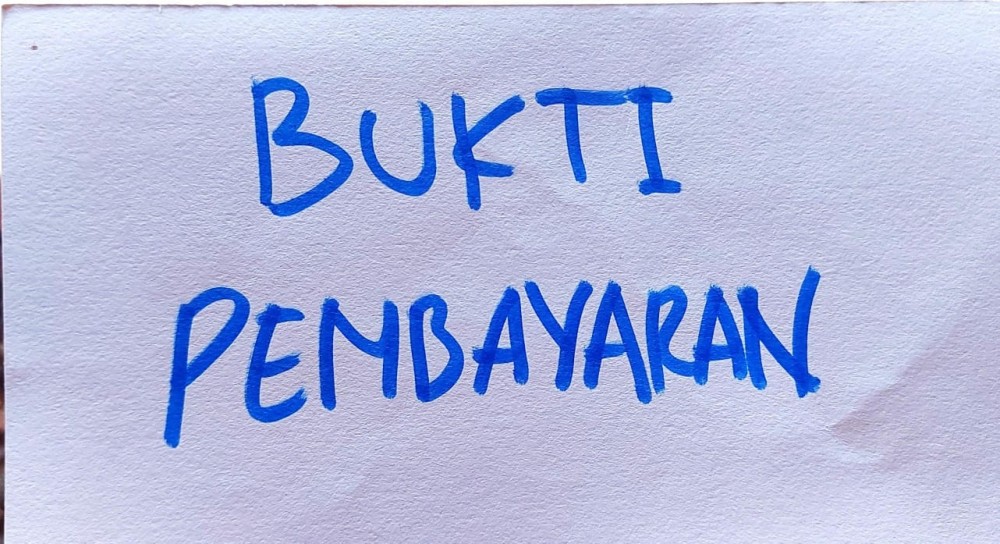 BUKTI
PEMBAYARAN